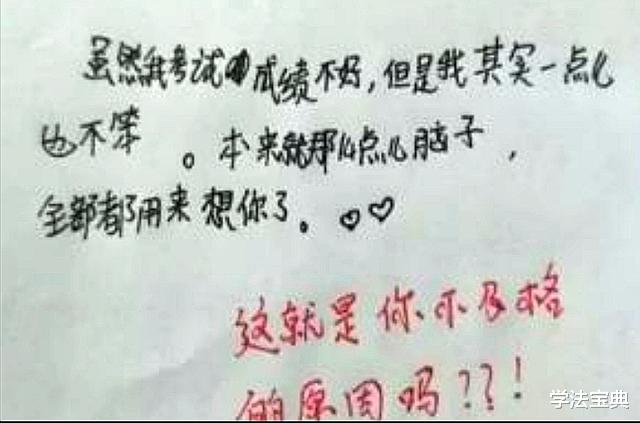 虽然我考试成绩不好，但是我其实一点儿
也不笨。本来就那么点儿脑子，
全部都用来想你了。♡♡
这就是你不及格
的原因吗？？！
学法宝典